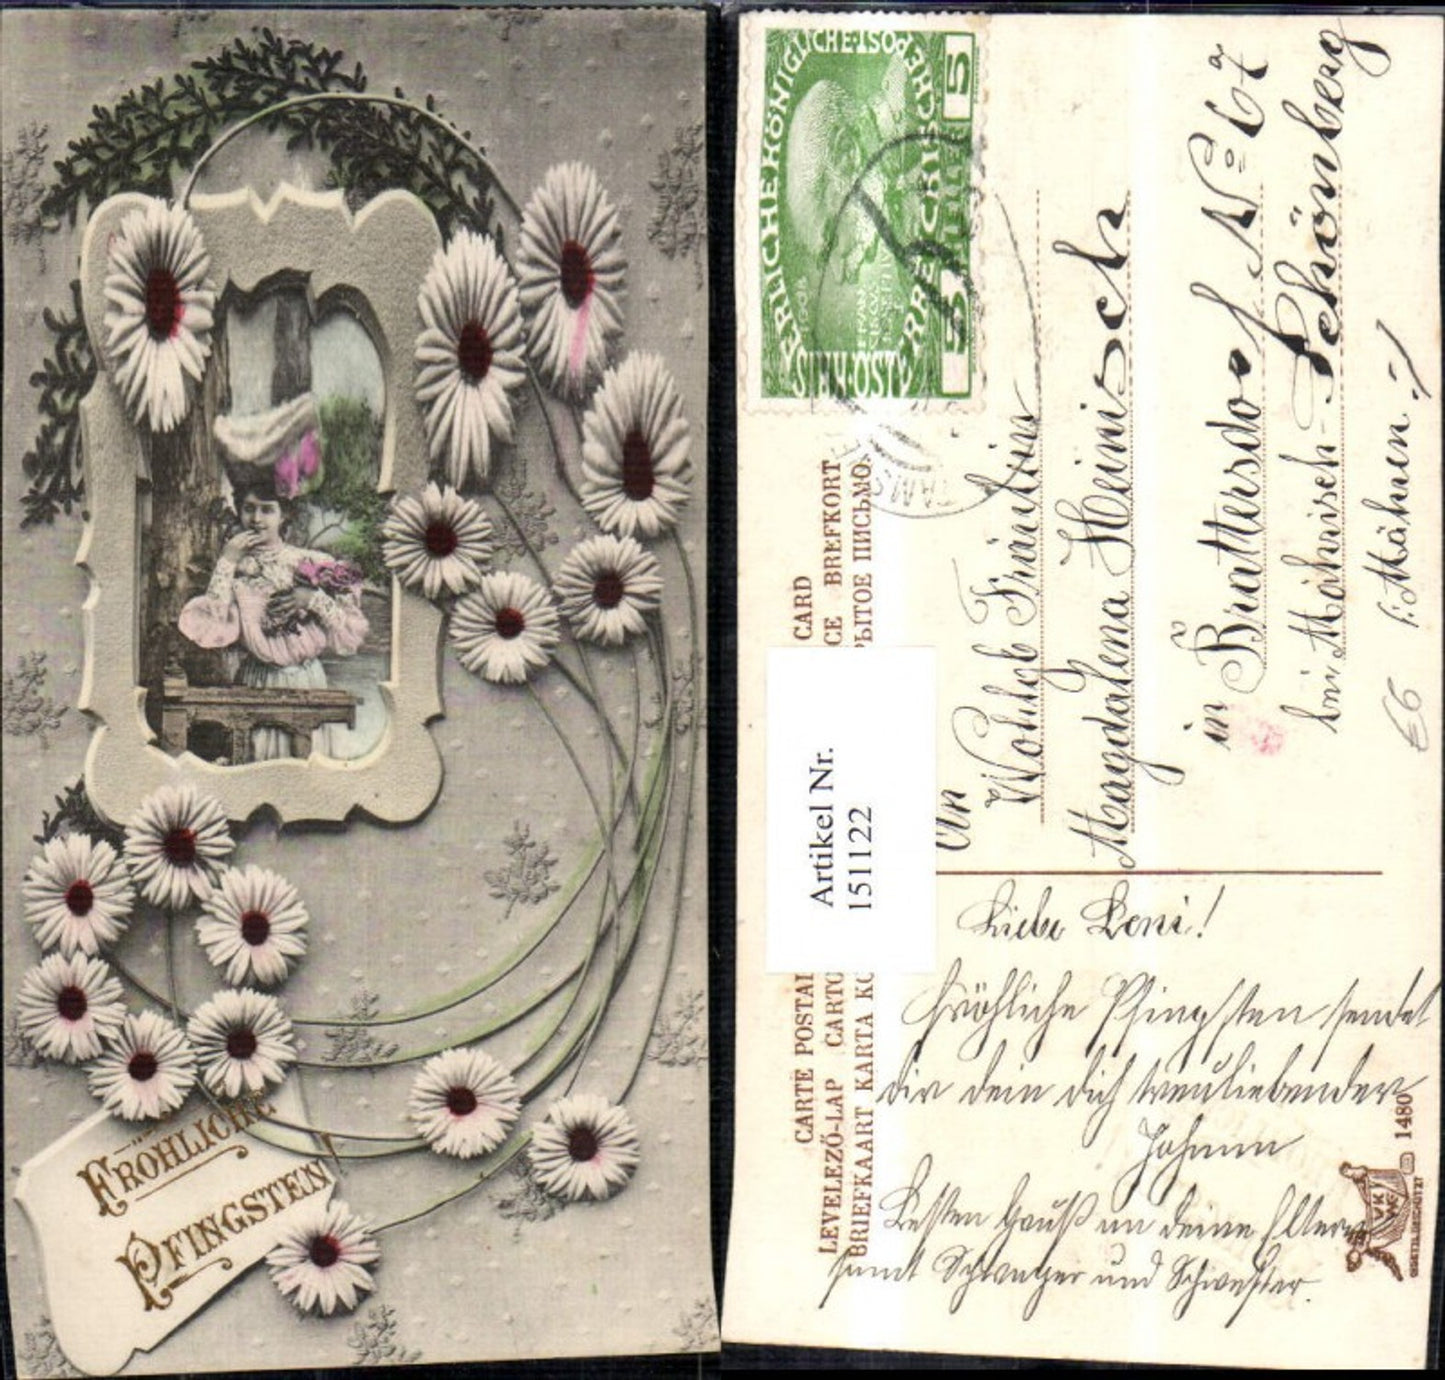 FRÖHLICHE
PFINGSTEN!
KAISERLICHE KÖNIGLICHE
ÖSTERREICHISCHE POST
1908
5 HELLER 5
CARTE POSTAL
CARD
LEVELEZŐ-LAP
BREFKORT
BRIEFKAART KARTA
ПИСЬМО
Artikel Nr.
151122
An
Wohlgeb Fräulein
Magdalena Heinisch
in Brattersdorf No 67
bei Mährisch-Schönberg
/:Mähren:/
€6
Liebe Leni!
Fröhliche Pfingsten sendet
dir dein dich treuliebender
Johann
Besten Gruß an deine Eltern
samt Schwager und Schwester.
1480